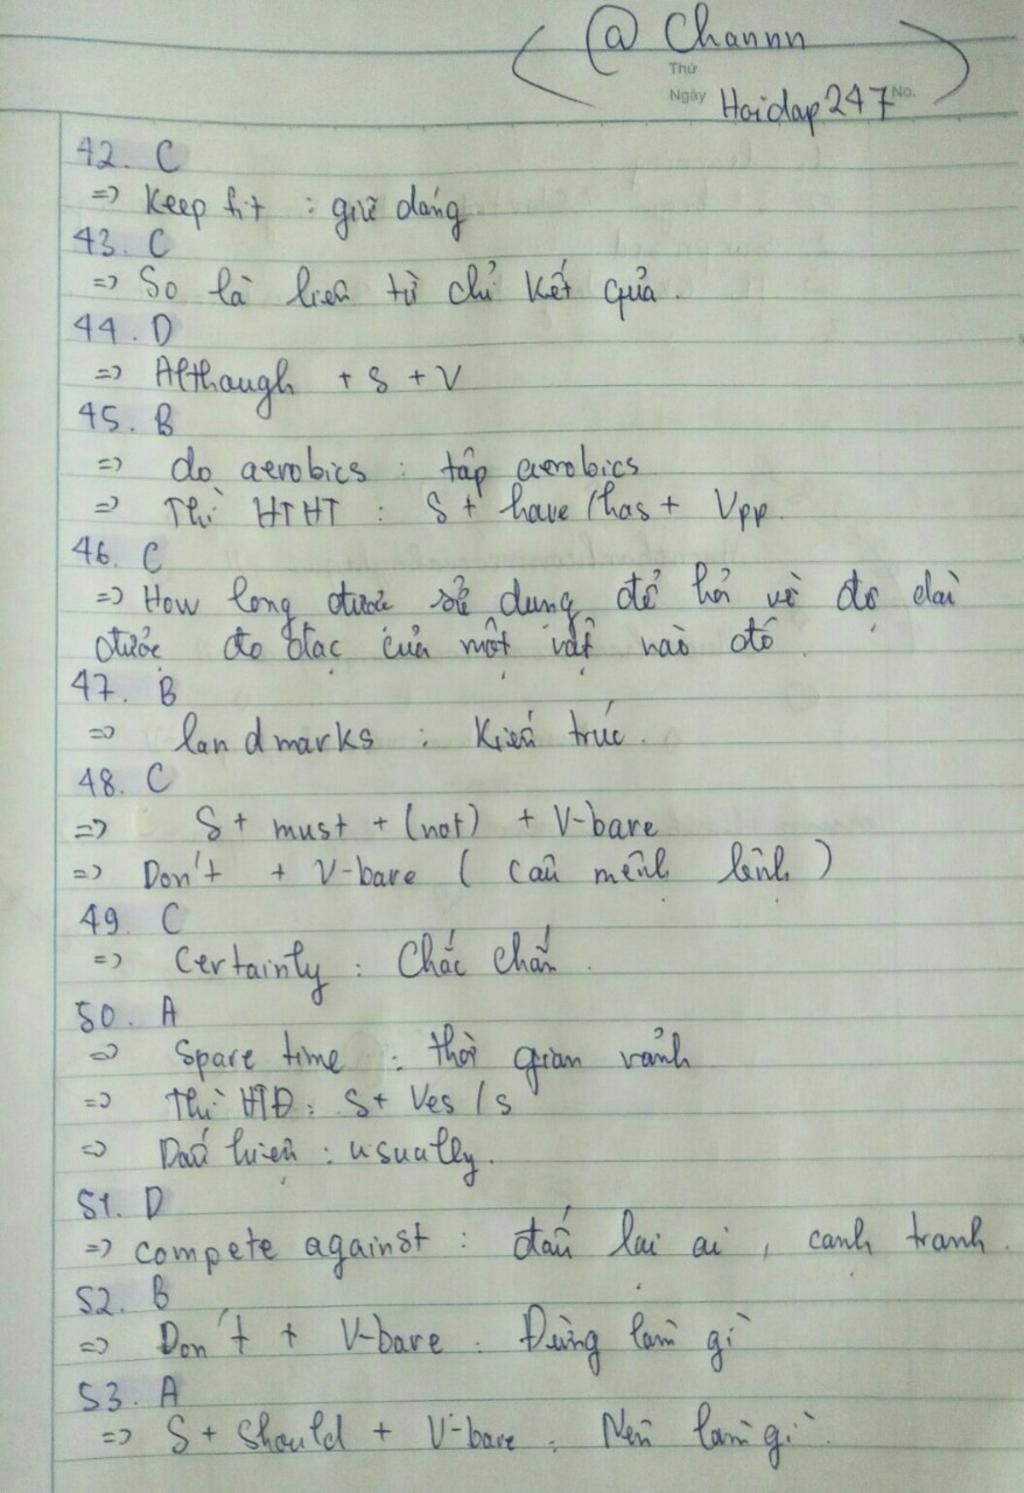 @ Channn
Thứ
Ngày
No.
Hoidap247
42. C
=> Keep fit : giữ dáng
43. C
=> So là liên từ chỉ kết quả.
44. D
=> Although + S + V
45. B
=> do aerobics : tập aerobics
=> Thì HTHT : S + have/has + Vpp.
46. C
=> How long được sử dụng để hỏi về độ dài
được đo đạc của một vật nào đó.
47. B
=> landmarks : Kiến trúc.
48. C
=> S + must + (not) + V-bare
=> Don't + V-bare ( câu mệnh lệnh )
49. C
=> Certainty : Chắc chắn.
50. A
=> Spare time : thời gian rảnh
=> Thì HTĐ : S + Ves/s
=> Dấu hiệu : usually.
51. D
=> compete against : đấu lại ai, cạnh tranh.
52. B
=> Don't + V-bare : Đừng làm gì
53. A
=> S + Should + V-bare : Nên làm gì.